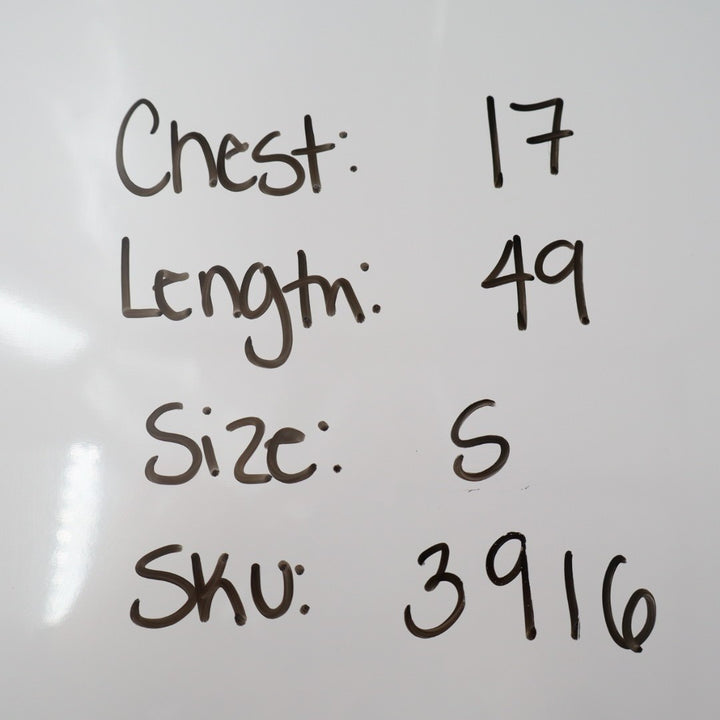 Chest: 17
Length: 49
Size: S
SKU: 3916